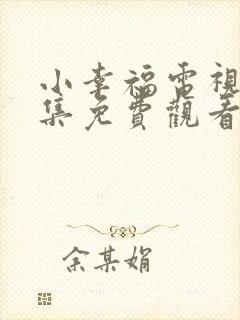 小幸福電視
集免費觀看
余某娟